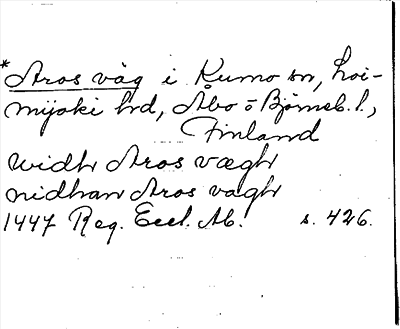 *Aros våg i Kumo sn, Loi-
mijoki hd, Åbo o Björneb. l.,
Finland
widh Aros vægh
nidhan Aros vagh
1447 Reg. Eccl. Ab. s. 426.